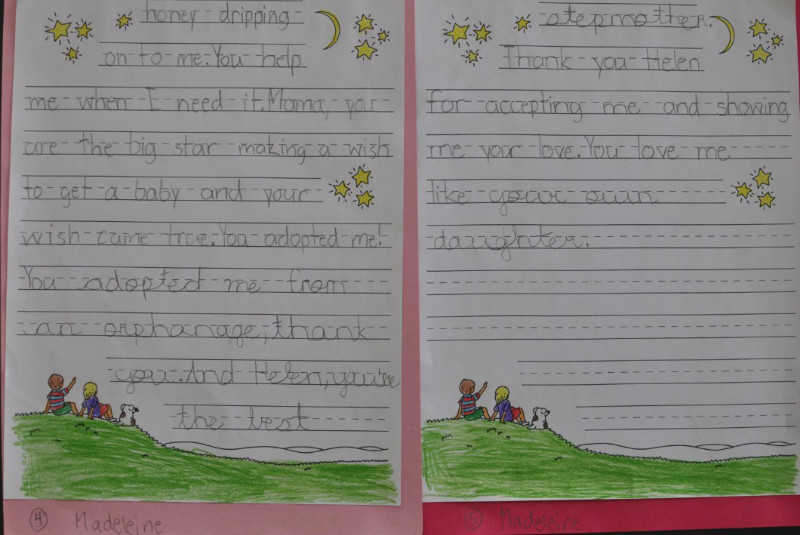 honey dripping
on to me. You help
me when I need it. Mama, you
are the big star making a wish
to get a baby and your
wish came true. You adopted me!
You adopted me from
an orphanage, thank
you. And Helen, you're
the best
4 Madeleine
stepmother.
Thank you Helen
for accepting me and showing
me your love. You love me
like your own
daughter.
5 Madeleine